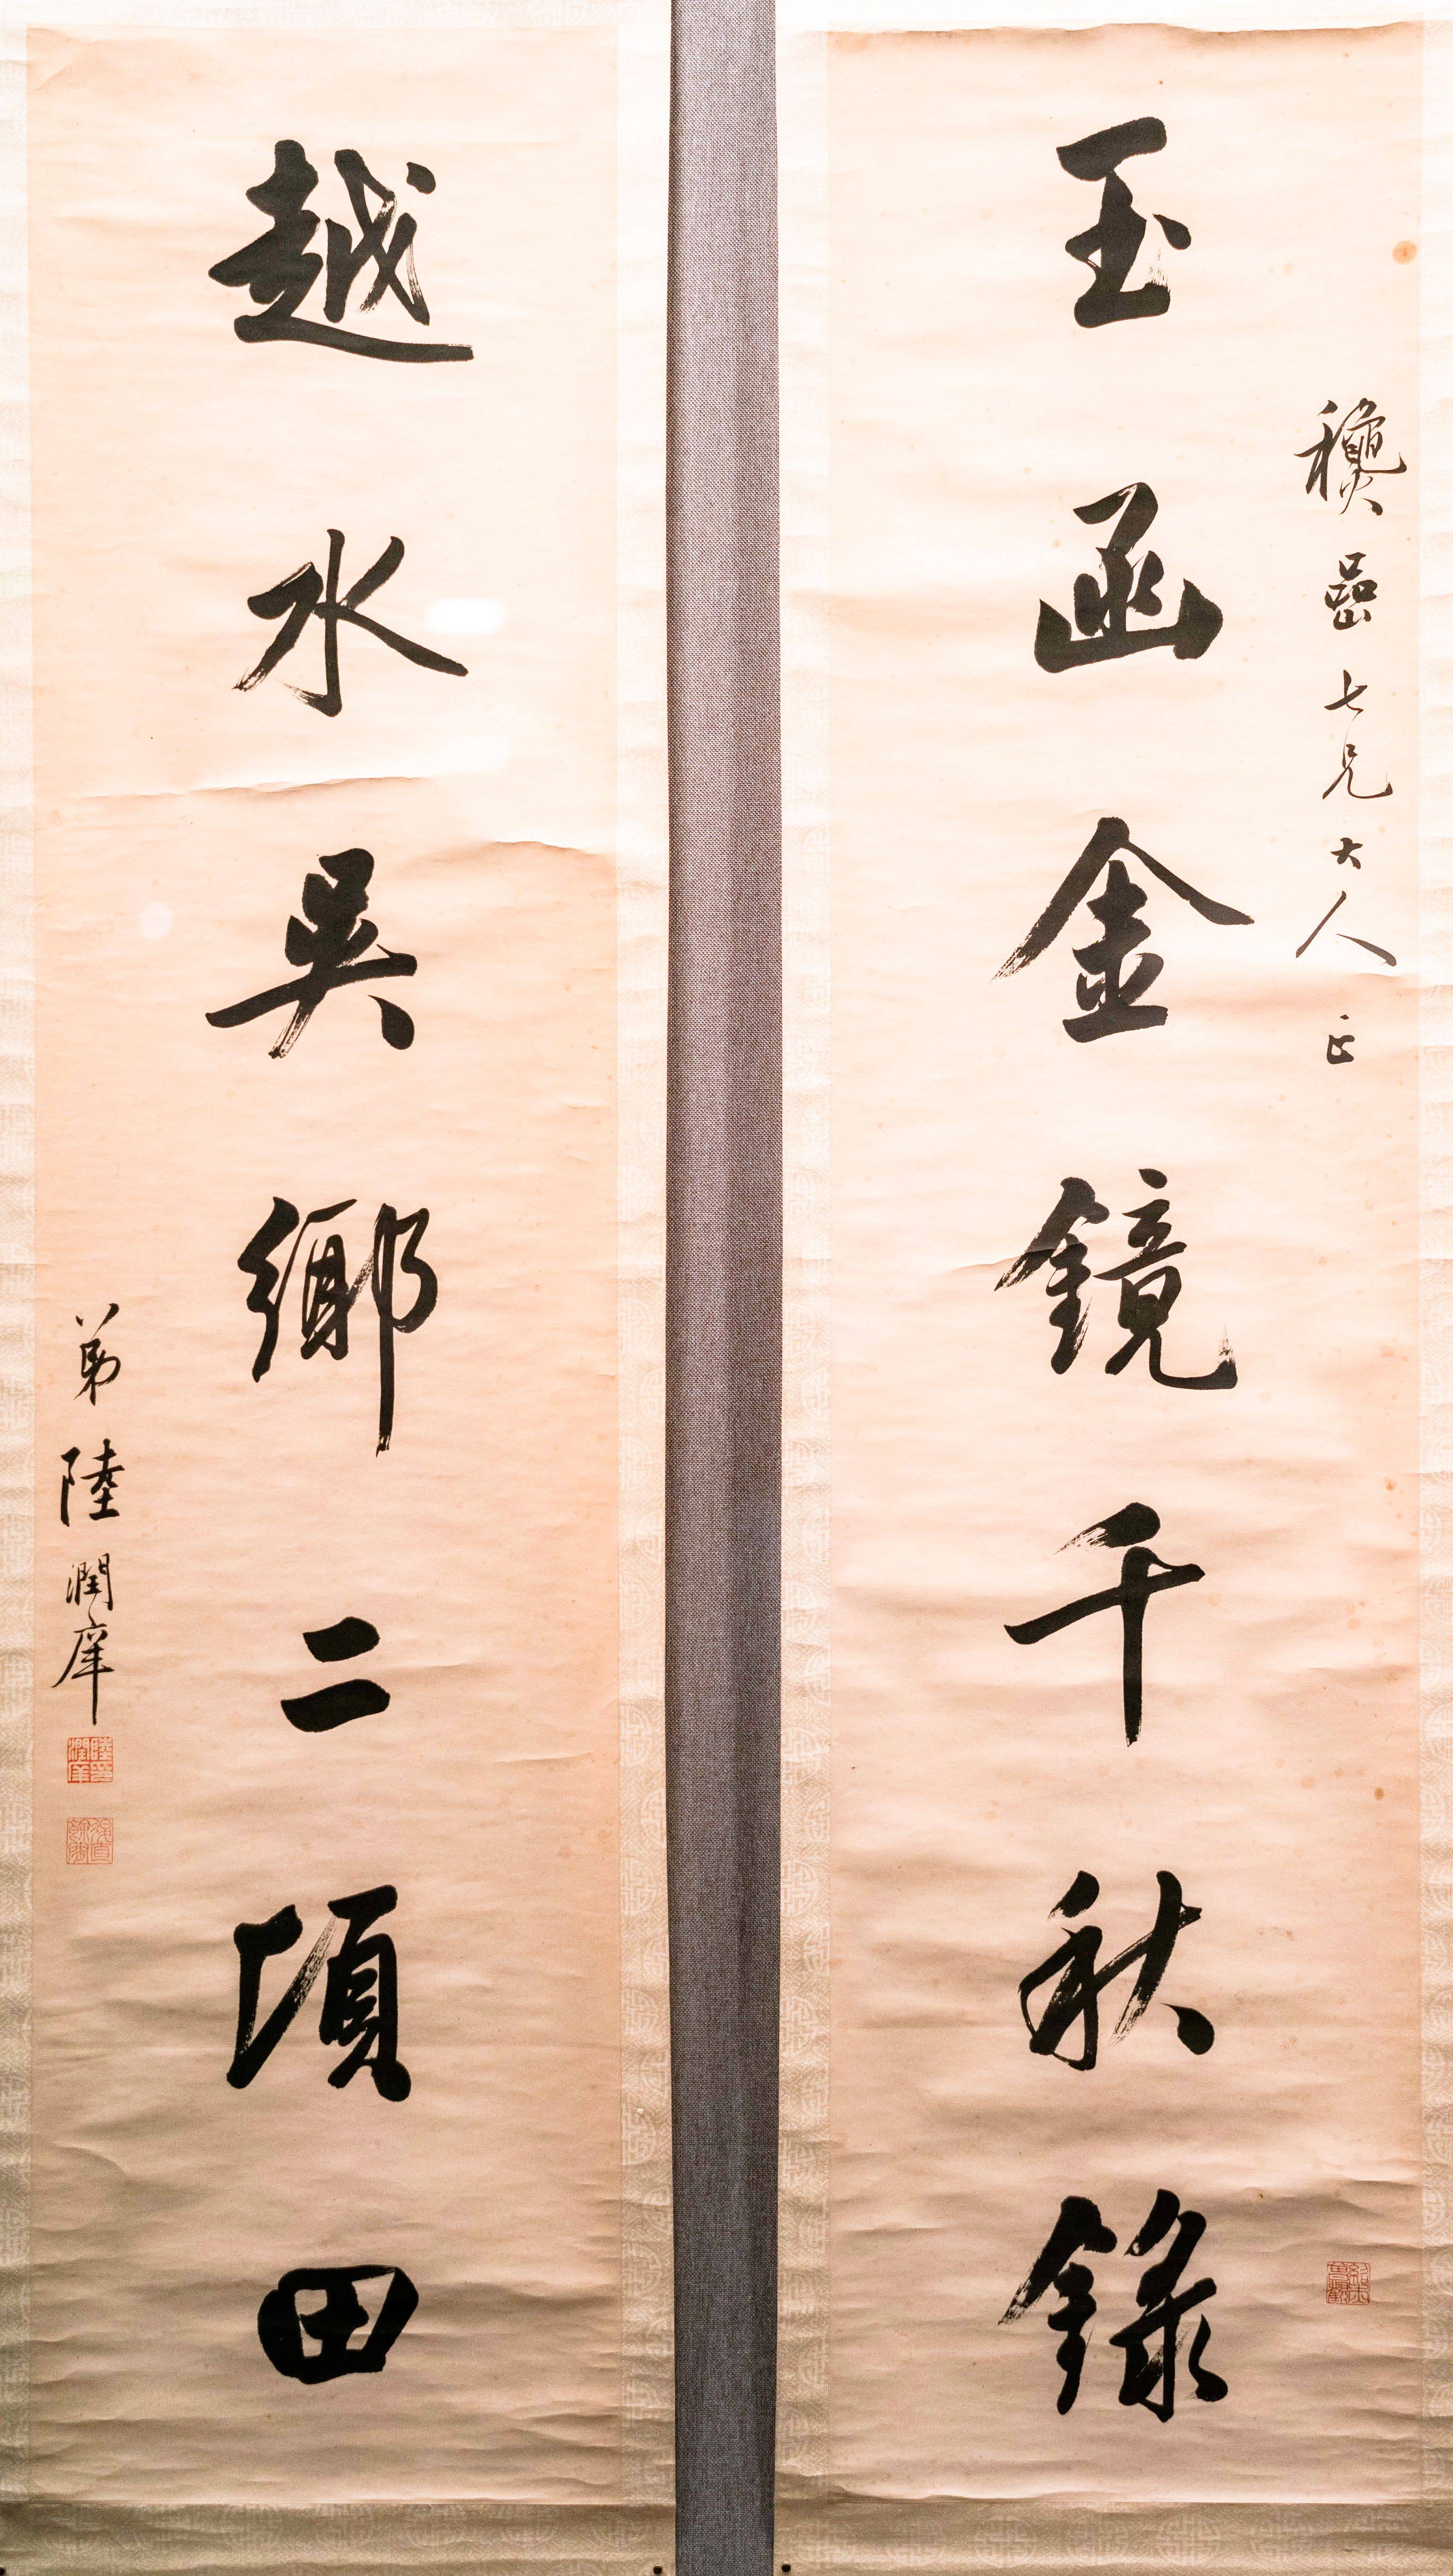 龝喦七兄大人正
玉函金鏡千秋錄
越水吳鄉二頃田
弟陸潤庠
陸潤庠